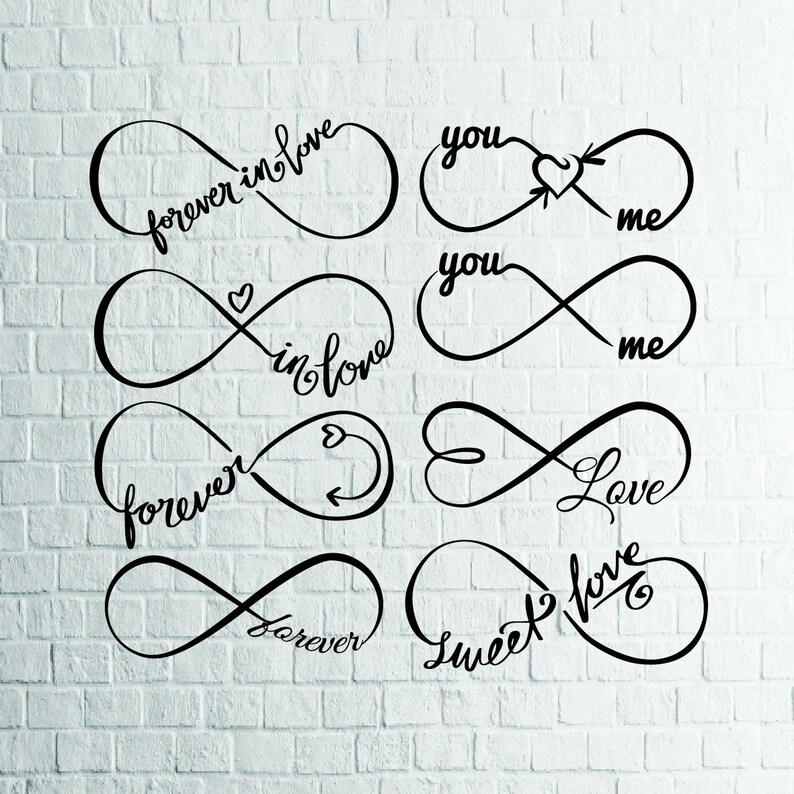 forever in love
you
me
in love
you
me
forever
Love
forever
sweet love